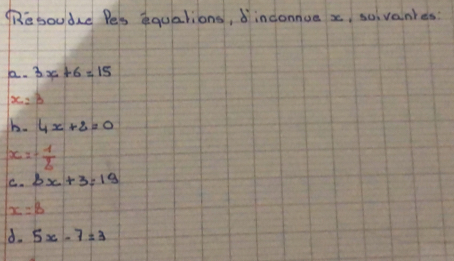 Résoudre les équations, d'inconnue x, suivantes:
a. 3x+6=15
x=3
b. 4x+2=0
x=-1/2
c. 2x+3=19
x=8
d. 5x-7=3